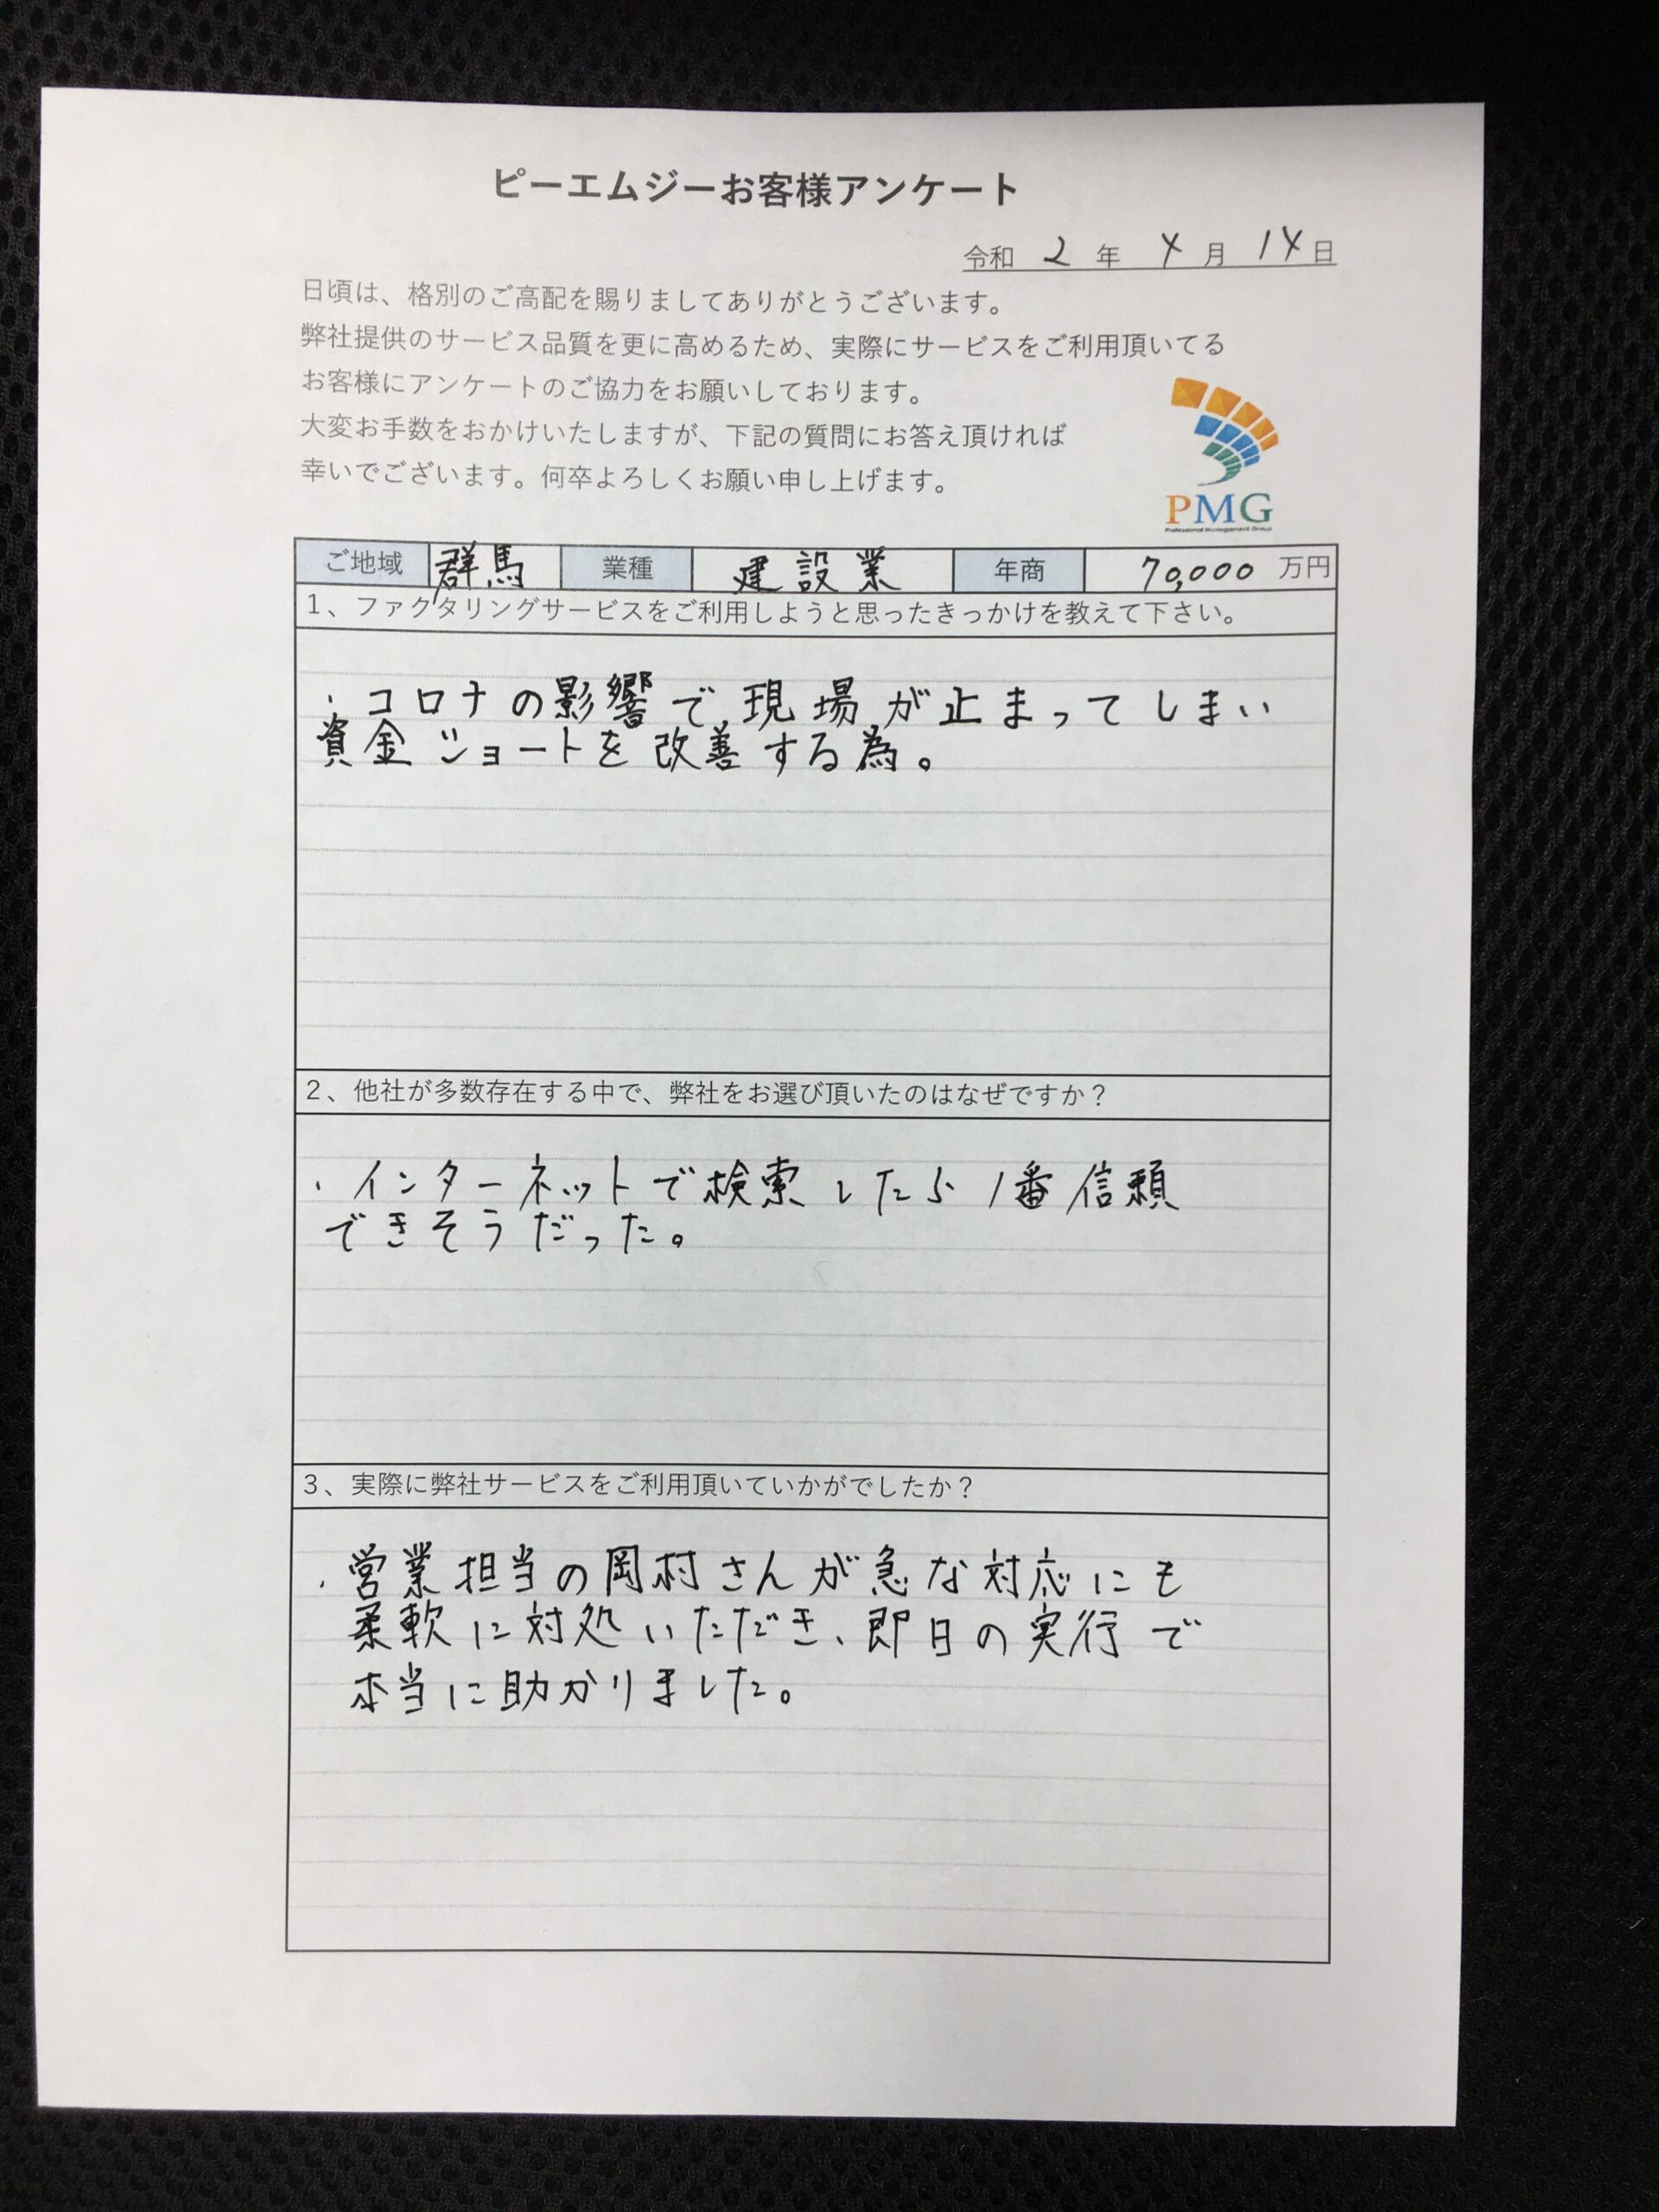 ピーエムジーお客様アンケート
令和 2 年 4 月 14 日
日頃は、格別のご高配を賜りましてありがとうございます。
弊社提供のサービス品質を更に高めるため、実際にサービスをご利用頂いてる
お客様にアンケートのご協力をお願いしております。
大変お手数をおかけいたしますが、下記の質問にお答え頂ければ
幸いでございます。何卒よろしくお願い申し上げます。
PMG
Professional Management Group
ご地域 群馬 業種 建設業 年商 70,000 万円
1、ファクタリングサービスをご利用しようと思ったきっかけを教えて下さい。
・コロナの影響で、現場が止まってしまい
資金ショートを改善する為。
2、他社が多数存在する中で、弊社をお選び頂いたのはなぜですか？
・インターネットで検索したら1番信頼
できそうだった。
3、実際に弊社サービスをご利用頂いていかがでしたか？
・営業担当の岡村さんが急な対応にも
柔軟に対処いただき、即日の実行で
本当に助かりました。